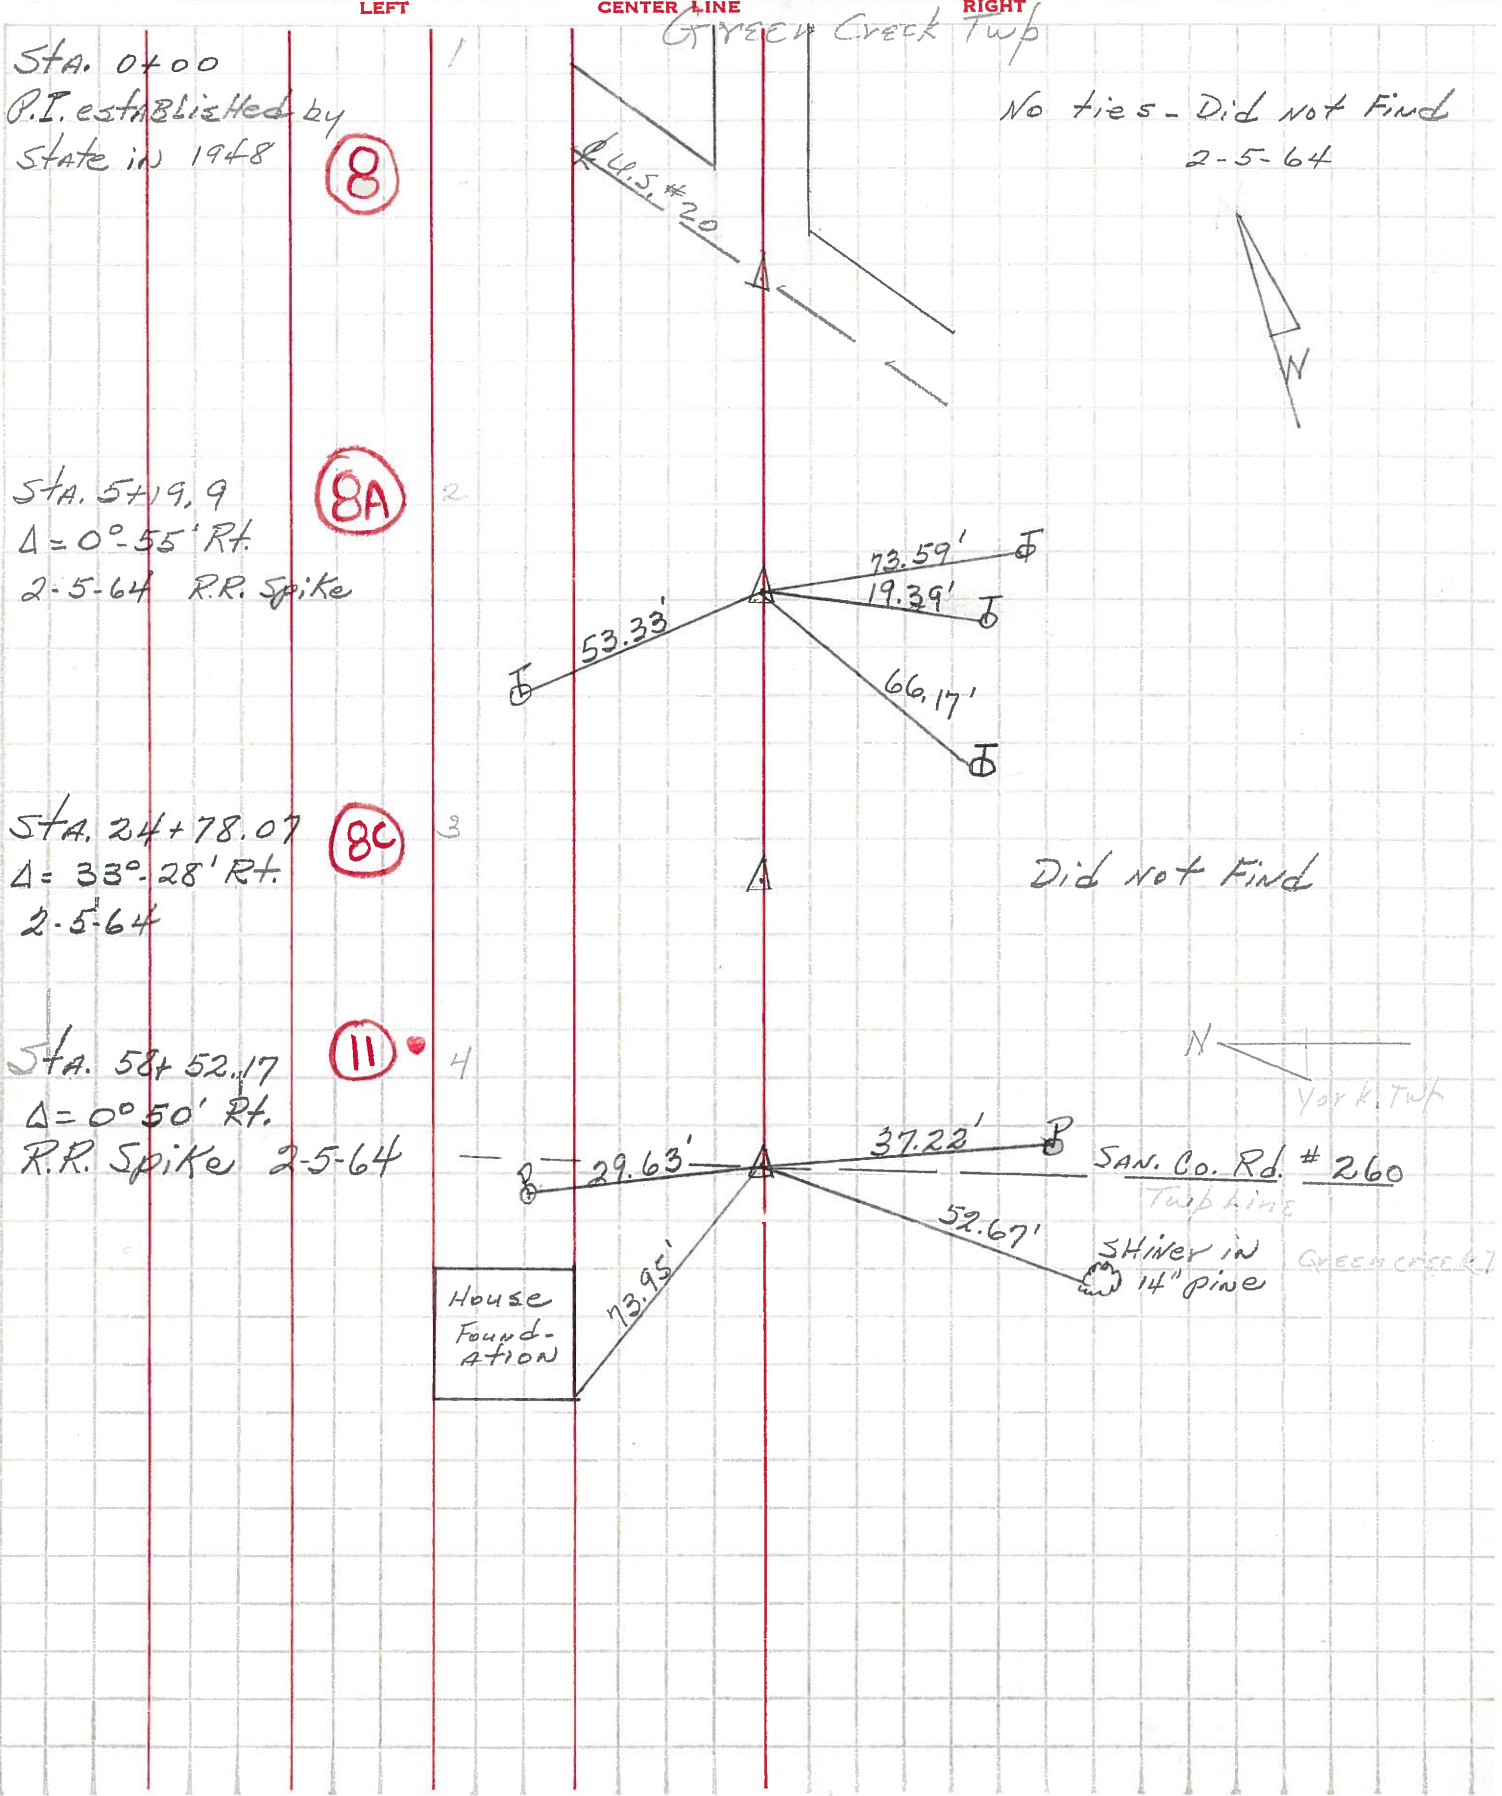 LEFT CENTER LINE RIGHT
Green Creek Twp
Sta. 0+00
P.I. established by
State in 1948
8
1
℄ U.S. #20
No ties - Did Not Find
2-5-64
N
Sta. 5+19.9
Δ = 0°-55' Rt.
2-5-64 R.R. Spike
8A
2
73.59'
19.39'
53.33'
66.17'
Sta. 24+78.07
Δ = 33°-28' Rt.
2-5-64
8C
3
Did Not Find
Sta. 58+52.17
Δ = 0°50' Rt.
R.R. Spike 2-5-64
11
4
N
York. Twp
29.63'
37.22'
P
San. Co. Rd. #260
Twp Line
52.67'
Shiner in
14" pine
Green creek T
73.95'
House
Found-
ation